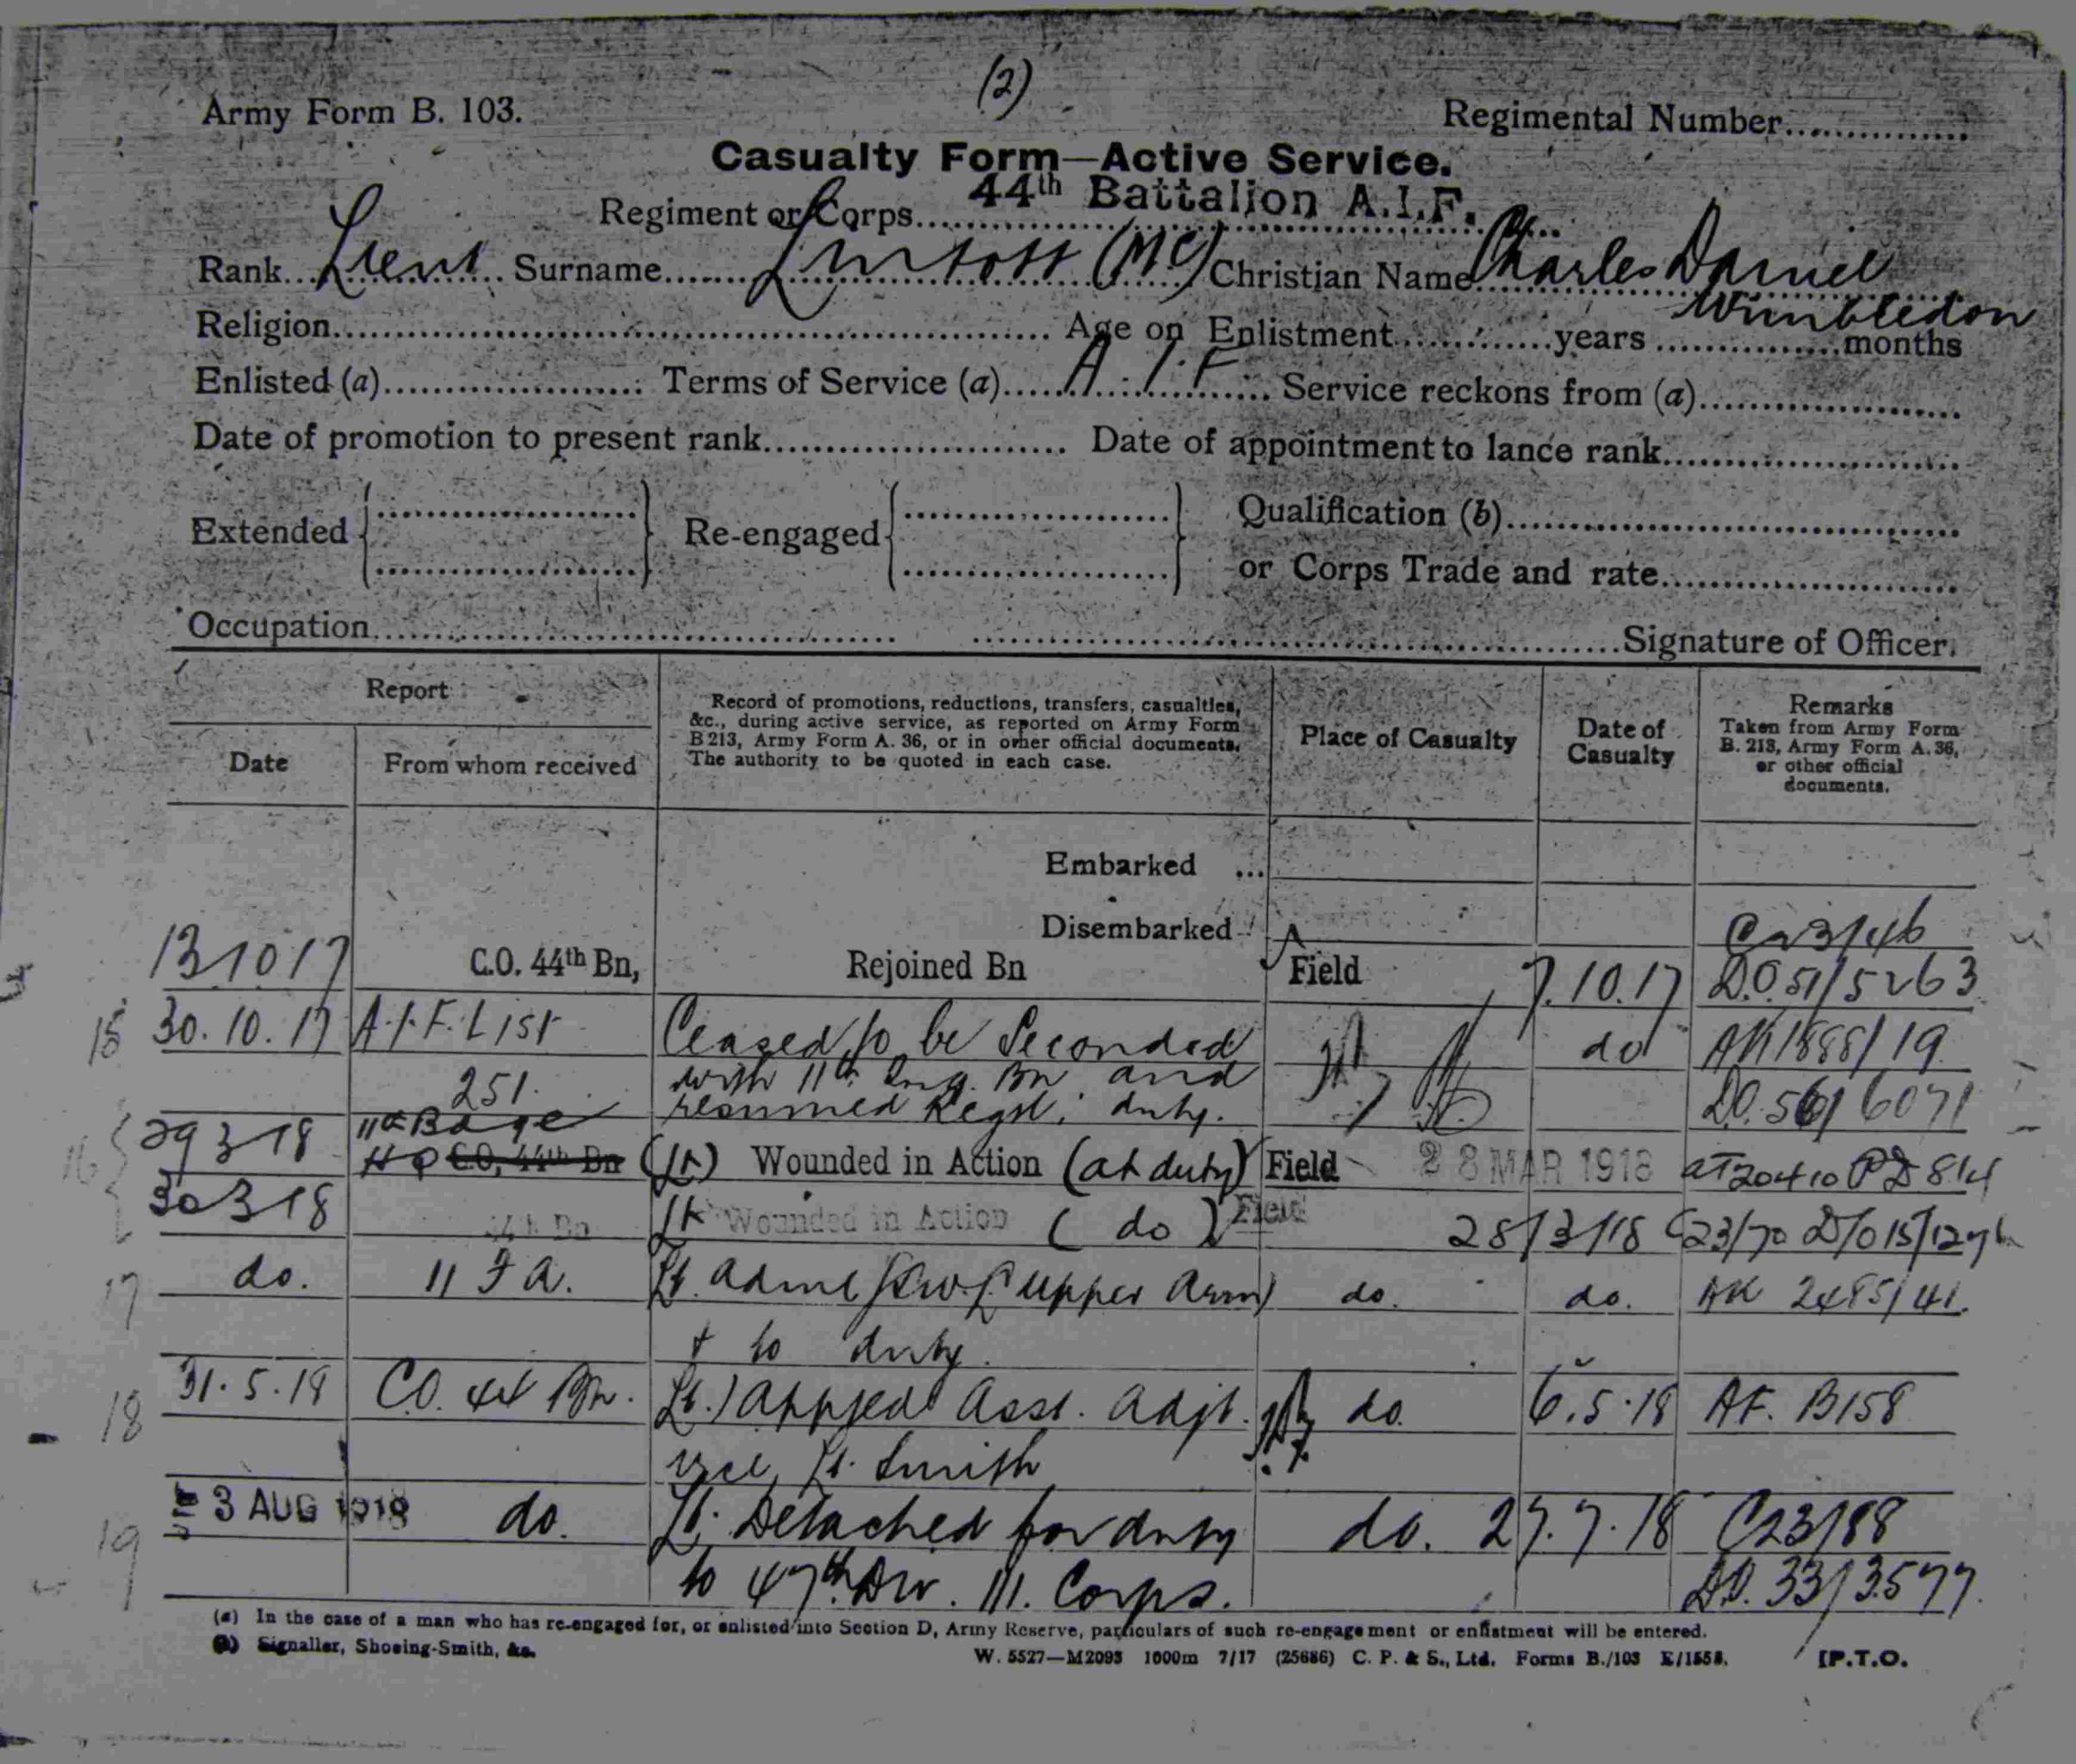 (2)
Army Form B. 103.
Regimental Number
Casualty Form—Active Service.
Regiment or Corps 44th Battalion A.I.F.
Rank Lieut Surname Linttott (MC) Christian Name Charles Daniel
Wimbledon
Religion Age on Enlistment years months
Enlisted (a) Terms of Service (a) A.I.F Service reckons from (a)
Date of promotion to present rank Date of appointment to lance rank
Extended Re-engaged Qualification (b)
or Corps Trade and rate
Occupation Signature of Officer.
Report
Date From whom received
Record of promotions, reductions, transfers, casualties,
&c., during active service, as reported on Army Form
B 213, Army Form A. 36, or in other official documents.
The authority to be quoted in each case.
Place of Casualty
Date of
Casualty
Remarks
Taken from Army Form
B. 213, Army Form A. 36,
or other official
documents.
Embarked ...
Disembarked
13 10 17 C.O. 44th Bn, Rejoined Bn Field 7.10.17 D.O.51/5263
15 30.10.17 A.I.F. List Ceased to be Seconded do AK1888/19
251. with 11th Trng. Bn and
resumed Regtl. duty. D.O. 56/6071
16 29 3 18 11th Bdge
HQ C.O. 44th Bn (Lt) Wounded in Action (at duty) Field 28 MAR 1918
30 3 18 44th Bn Lt Wounded in Action (do) Field 28/3/18 C23/70
17 do. 11 F A. Lt. Adme (SW. L upper Arm) do. do. AK 2485/41.
+ to duty.
18 31.5.18 C.O. 44 Bn. Lt.) Appted Asst. Adjt. do. 6.5.18 AF. B158
vice Lt. Smith
19 3 AUG 1918 do. Lt. Detached for duty do. 27.7.18 C23/88
to 47th Div. III. Corps. D.O. 33/3577.
(a) In the case of a man who has re-engaged for, or enlisted into Section D, Army Reserve, particulars of such re-engagement or enlistment will be entered.
(b) Signaller, Shoeing-Smith, &c.
W. 5527—M2093 1000m 7/17 (25686) C. P. & S., Ltd. Forms B./103 E/1558.
[P.T.O.